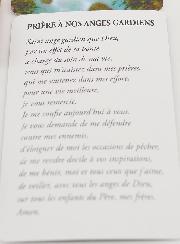 PRIÈRE À NOS ANGES GARDIENS
Saint ange gardien que Dieu,
par un effet de sa bonté
a chargé du soin de ma vie,
vous qui m'assistez dans mes prières,
qui me soutenez dans mes efforts
pour une vie meilleure,
je vous remercie.
Je me confie aujourd'hui à vous,
je vous demande de me défendre
contre mes ennemis,
d'éloigner de moi les occasions de pécher,
de me rendre docile à vos inspirations,
de me bénir, moi et tous ceux que j'aime,
de veiller, avec tous les anges de Dieu,
sur tous les enfants du Père, mes frères.
Amen.